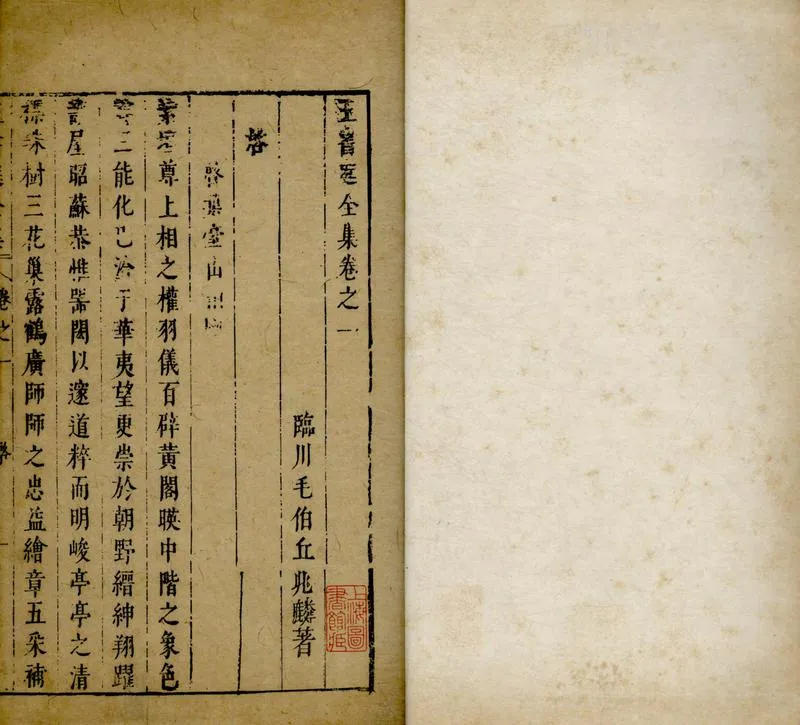 玉書庭全集卷之一
臨川毛伯丘兆麟著
啓
啓葉臺山
尊上相之權羽儀百辟黃閣暎中階之象色
三能化已洽于華夷望更崇於朝野縉紳翔躍
屋昭蘇恭惟閣以邃道粹而明峻亭亭之清
標珠樹三花巢露鶴廣師師之忠益繪章五采補
卷之一
上海圖書館藏